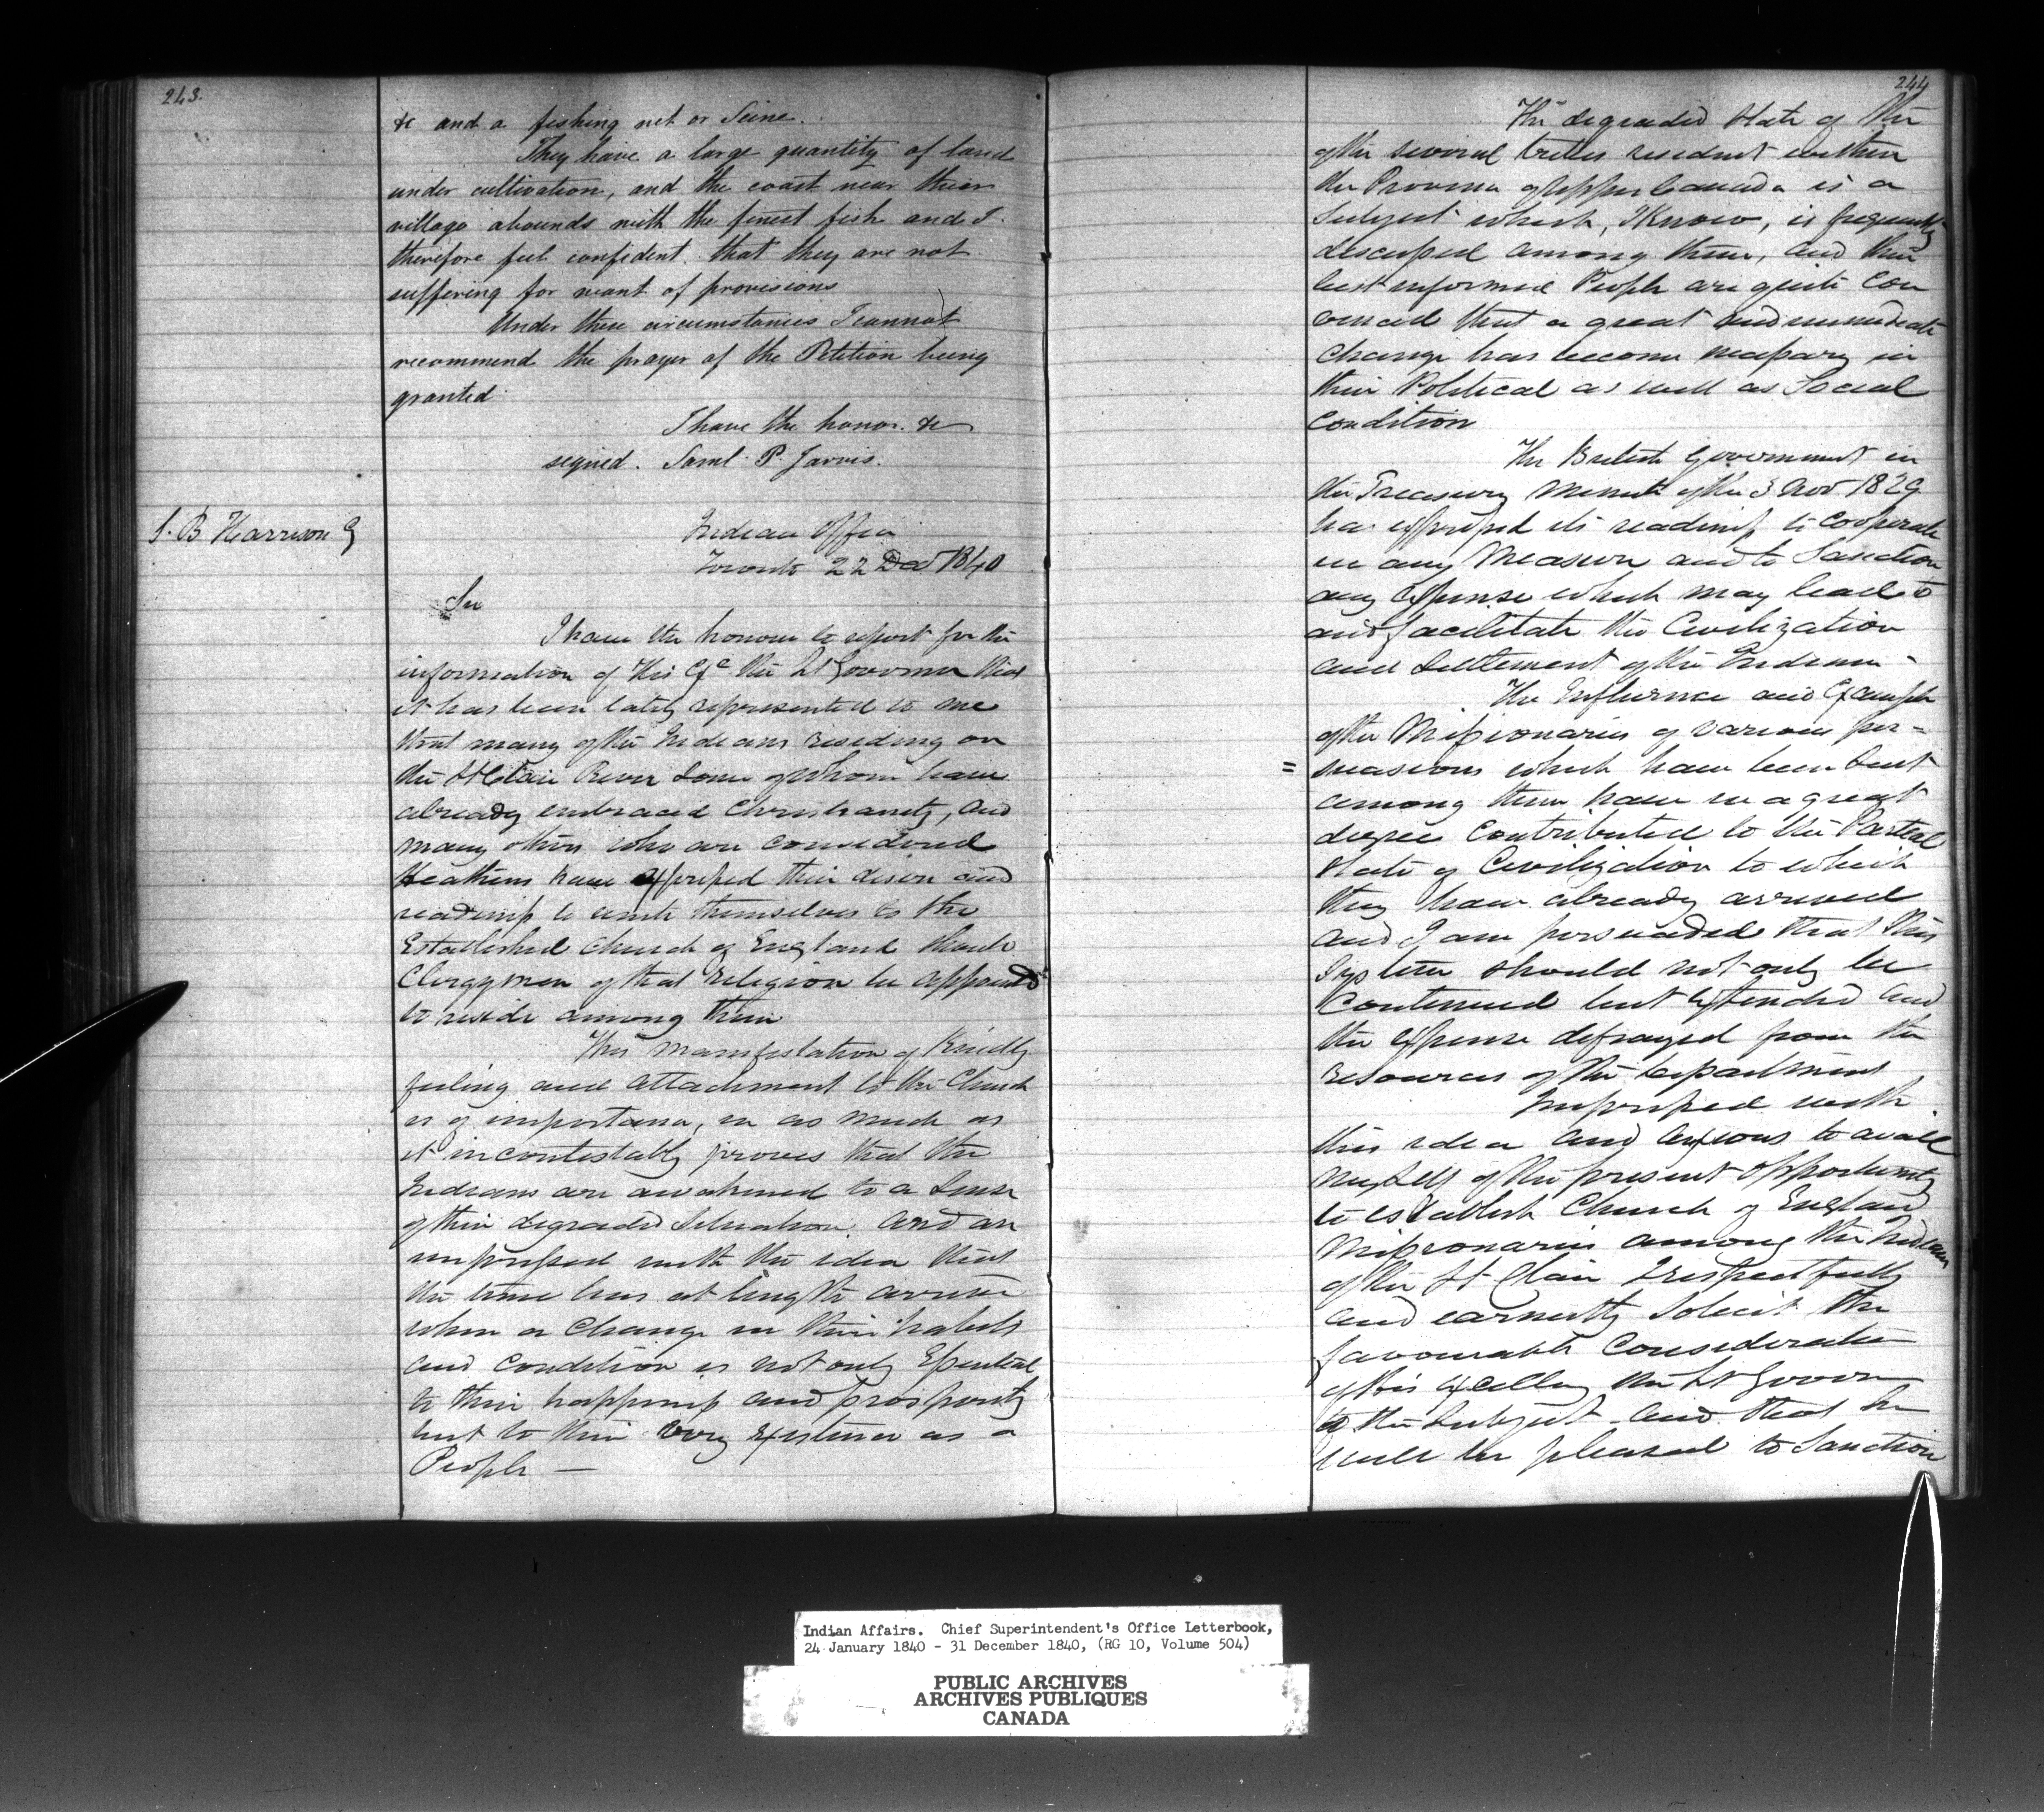 243.
&c and a fishing net or Seine.
They have a large quantity of land
under cultivation, and the coast near their
village abounds with the finest fish and I
therefore feel confident that they are not
suffering for want of provisions
Under these circumstances I cannot
recommend the prayer of the Petition being
granted
I have the honor. &c
signed. Saml. P. Jarvis.
S. B Harrison
Indian Office
Toronto 22 Dec 1840
Sir
I have the honour to report for the
information of His Exc the Lt Governor that
it has been lately represented to me
that many of the Indians residing on
the St Clair River some of whom have
already embraced Christianity, and
many others who are considered
Heathens have expressed their desire and
readiness to unite themselves to the
Established Church of England should
Clergymen of that religion be appointed
to reside among them
This manifestation of Kindly
feeling and attachment to the Church
is of importance, in as much as
it incontestably proves that the
Indians are awakened to a Sense
of their degraded Situation. and are
impressed with the idea that
the time has at length arrived
when a Change in their habits
and Condition is not only Essential
to their happiness and prosperity
but to their very Existence as a
People —
244
The degraded State of the
of the several tribes resident within
the Province of Upper Canada is a
Subject which, I Know, is frequently
discussed among them, and their
best informed People are quite Con
vinced that a great and immediate
Change has become necessary in
their Political as well as Social
Condition
The British Government in
the Treasury Minute of the 3 Nov 1829
has expressed its readiness to Cooperate
in any Measure and to Sanction
any Expense which may lead to
and facilitate the Civilization
and Settlement of the Indians -
The Influence and Example
of the Missionaries of various per=
=suasions which have been Sent
among them have in a great
degree Contributed to the Partial
State of Civilization to which
they have already arrived
and I am persuaded that this
System should not only be
Continued but Extended and
the Expense defrayed from the
resources of the Department
Impressed with
this idea and anxious to avail
myself of the present opportunity
to establish Church of England
Missionaries among the Indians
of the St Clair I respectfully
and earnestly Solicit the
favourable Consideration
of His Excellency the Lt Govern
to the Subject and that he
will be pleased to Sanction
Indian Affairs. Chief Superintendent's Office Letterbook,
24 January 1840 - 31 December 1840, (RG 10, Volume 504)
PUBLIC ARCHIVES
ARCHIVES PUBLIQUES
CANADA